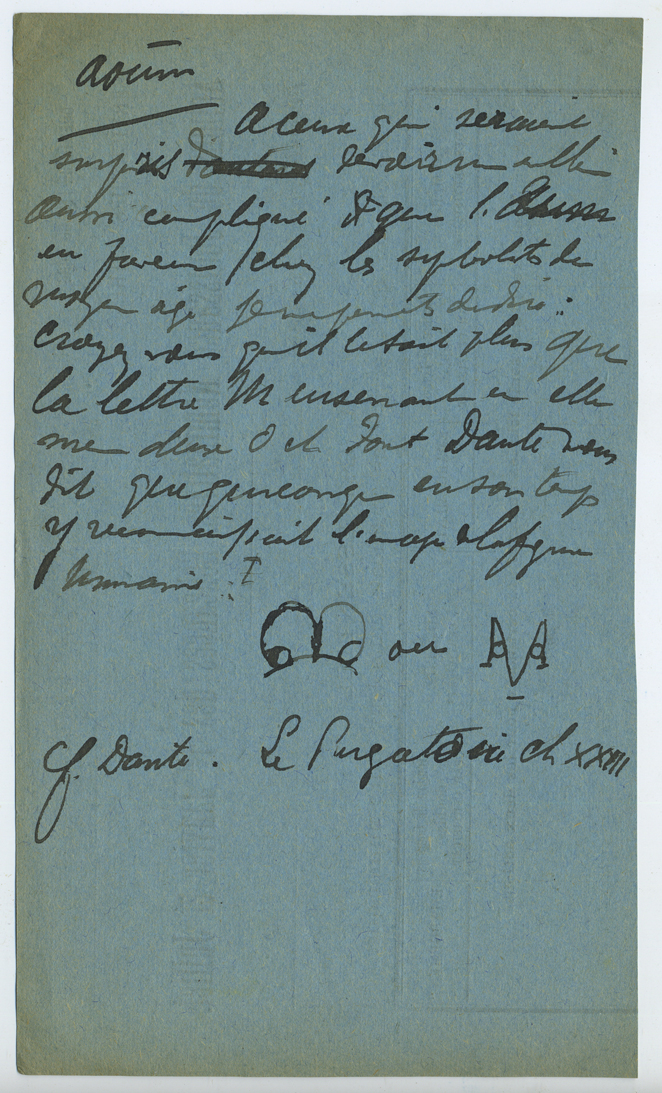 aoūm
A ceux qui seraient
surpris de voir un
aussi compliqué que l'Aoum
en faveur chez les symbolistes du
moyen age je me permets de dire :
croyez vous qu'il l'etait plus que
la lettre M enserrant en elle
meme deux O et dont Dante nous
dit que quiconque en son temps
y reconnaissait l'image de la figure
humaine : I
ou
cf. Dante. Le Purgatoire ch XXIII